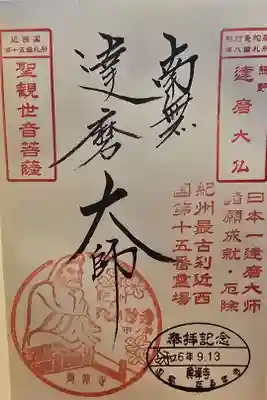 熊野曼陀羅
第八番札所
達磨大仏
南無
達磨大師
近西国
第十五番札所
聖観世音菩薩
日本一達磨大师
諸願成就・厄除
紀州最古刹近西
国第十五番霊場
興禅寺
奉拝記念
令和6年9.13
興禅寺